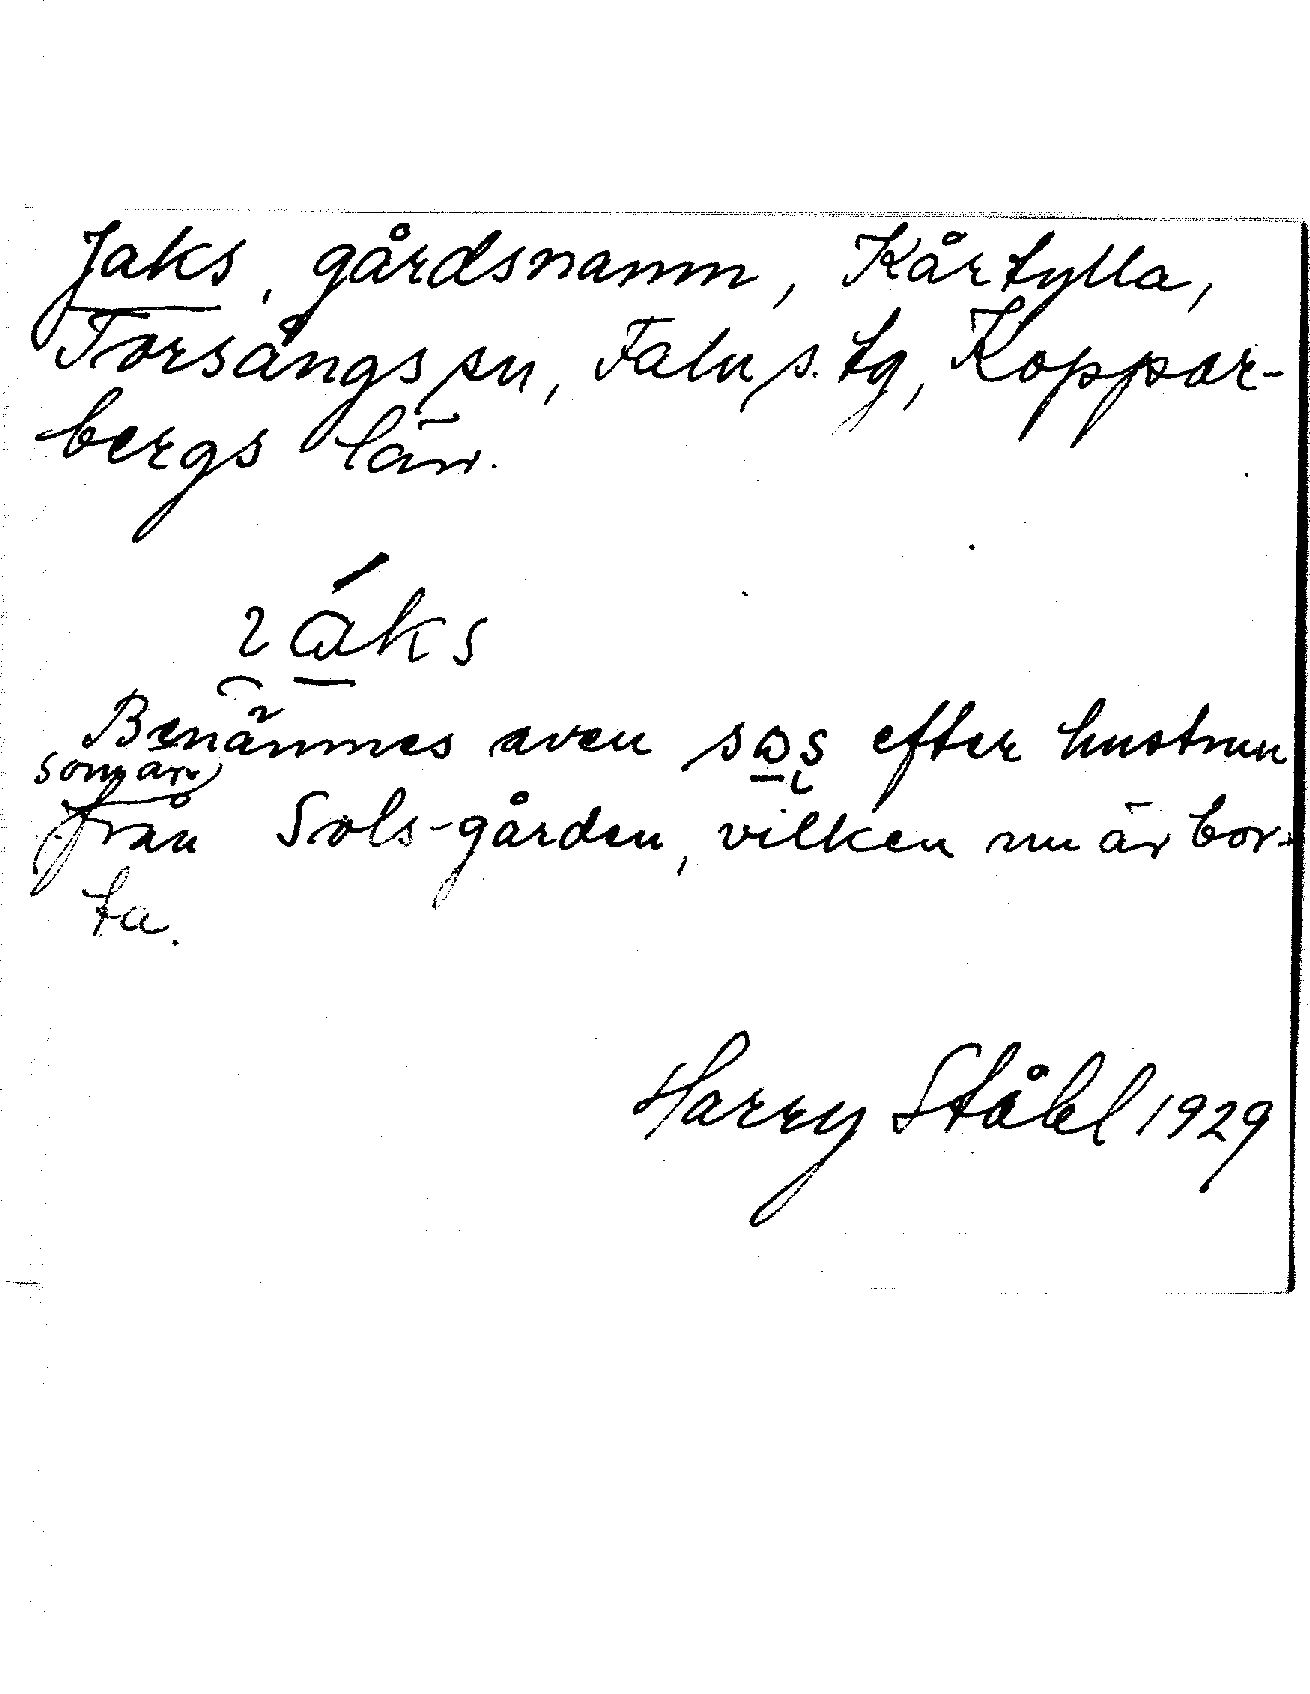 Jaks, gårdsnamn, Kårtylla,
Torsångs sn, Falu s. tg, Koppar-
bergs län.
Benämnes även efter hustrun
som är
från Sols-gården, vilken nu är bor-
ta.
Harry Ståhl 1929